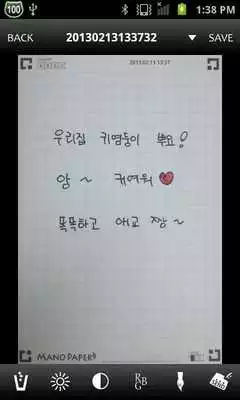 100
1:38 PM
BACK
20130213133732
SAVE
2013.02.13 13:37
우리집 귀염둥이 뿌요!
앙 ~ 귀여워
똑똑하고 애교 짱 ~
MANO PAPER
RGB